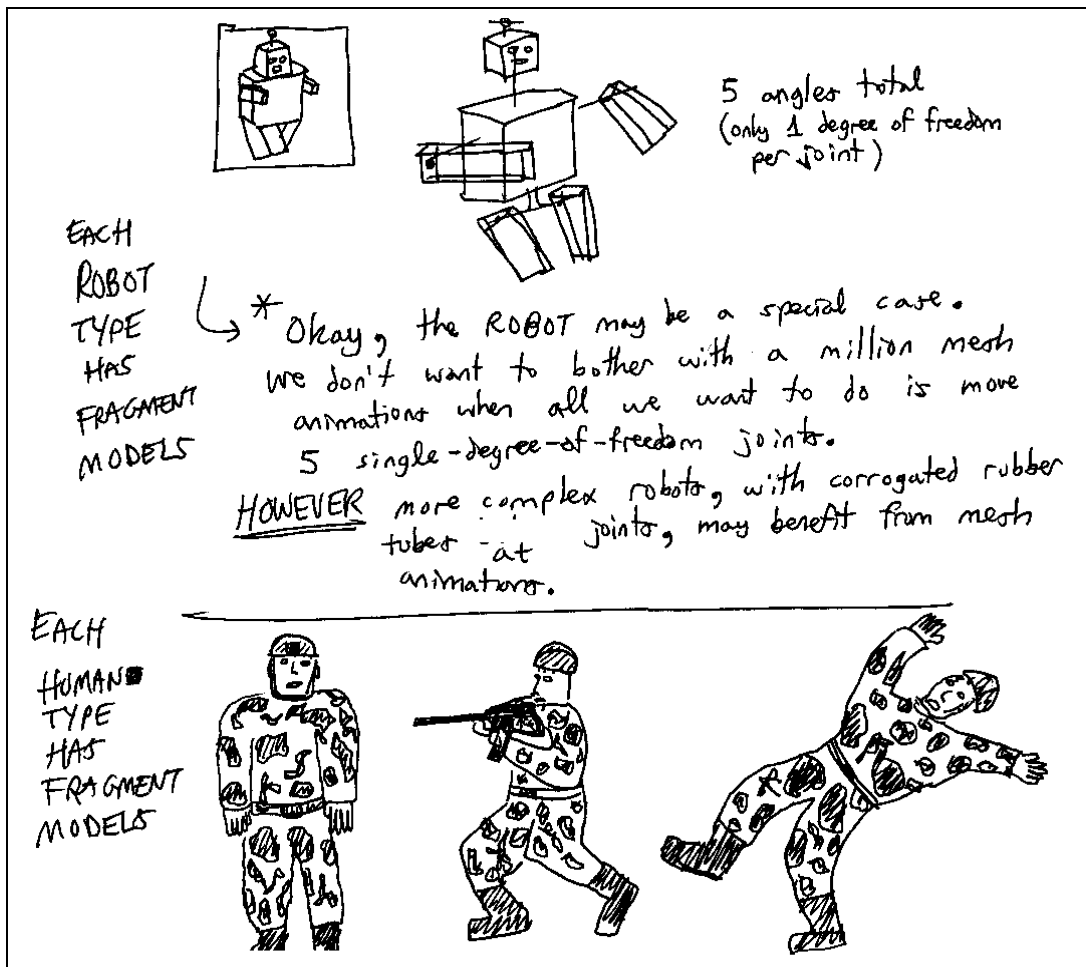 5 angles total
(only 1 degree of freedom
per joint)
EACH
ROBOT
TYPE
HAS
FRAGMENT
MODELS
* Okay, the ROBOT may be a special case.
We don't want to bother with a million mesh
animations when all we want to do is move
5 single-degree-of-freedom joints.
HOWEVER more complex robots, with corrogated rubber
tubes at joints, may benefit from mesh
animations.
EACH
HUMAN
TYPE
HAS
FRAGMENT
MODELS